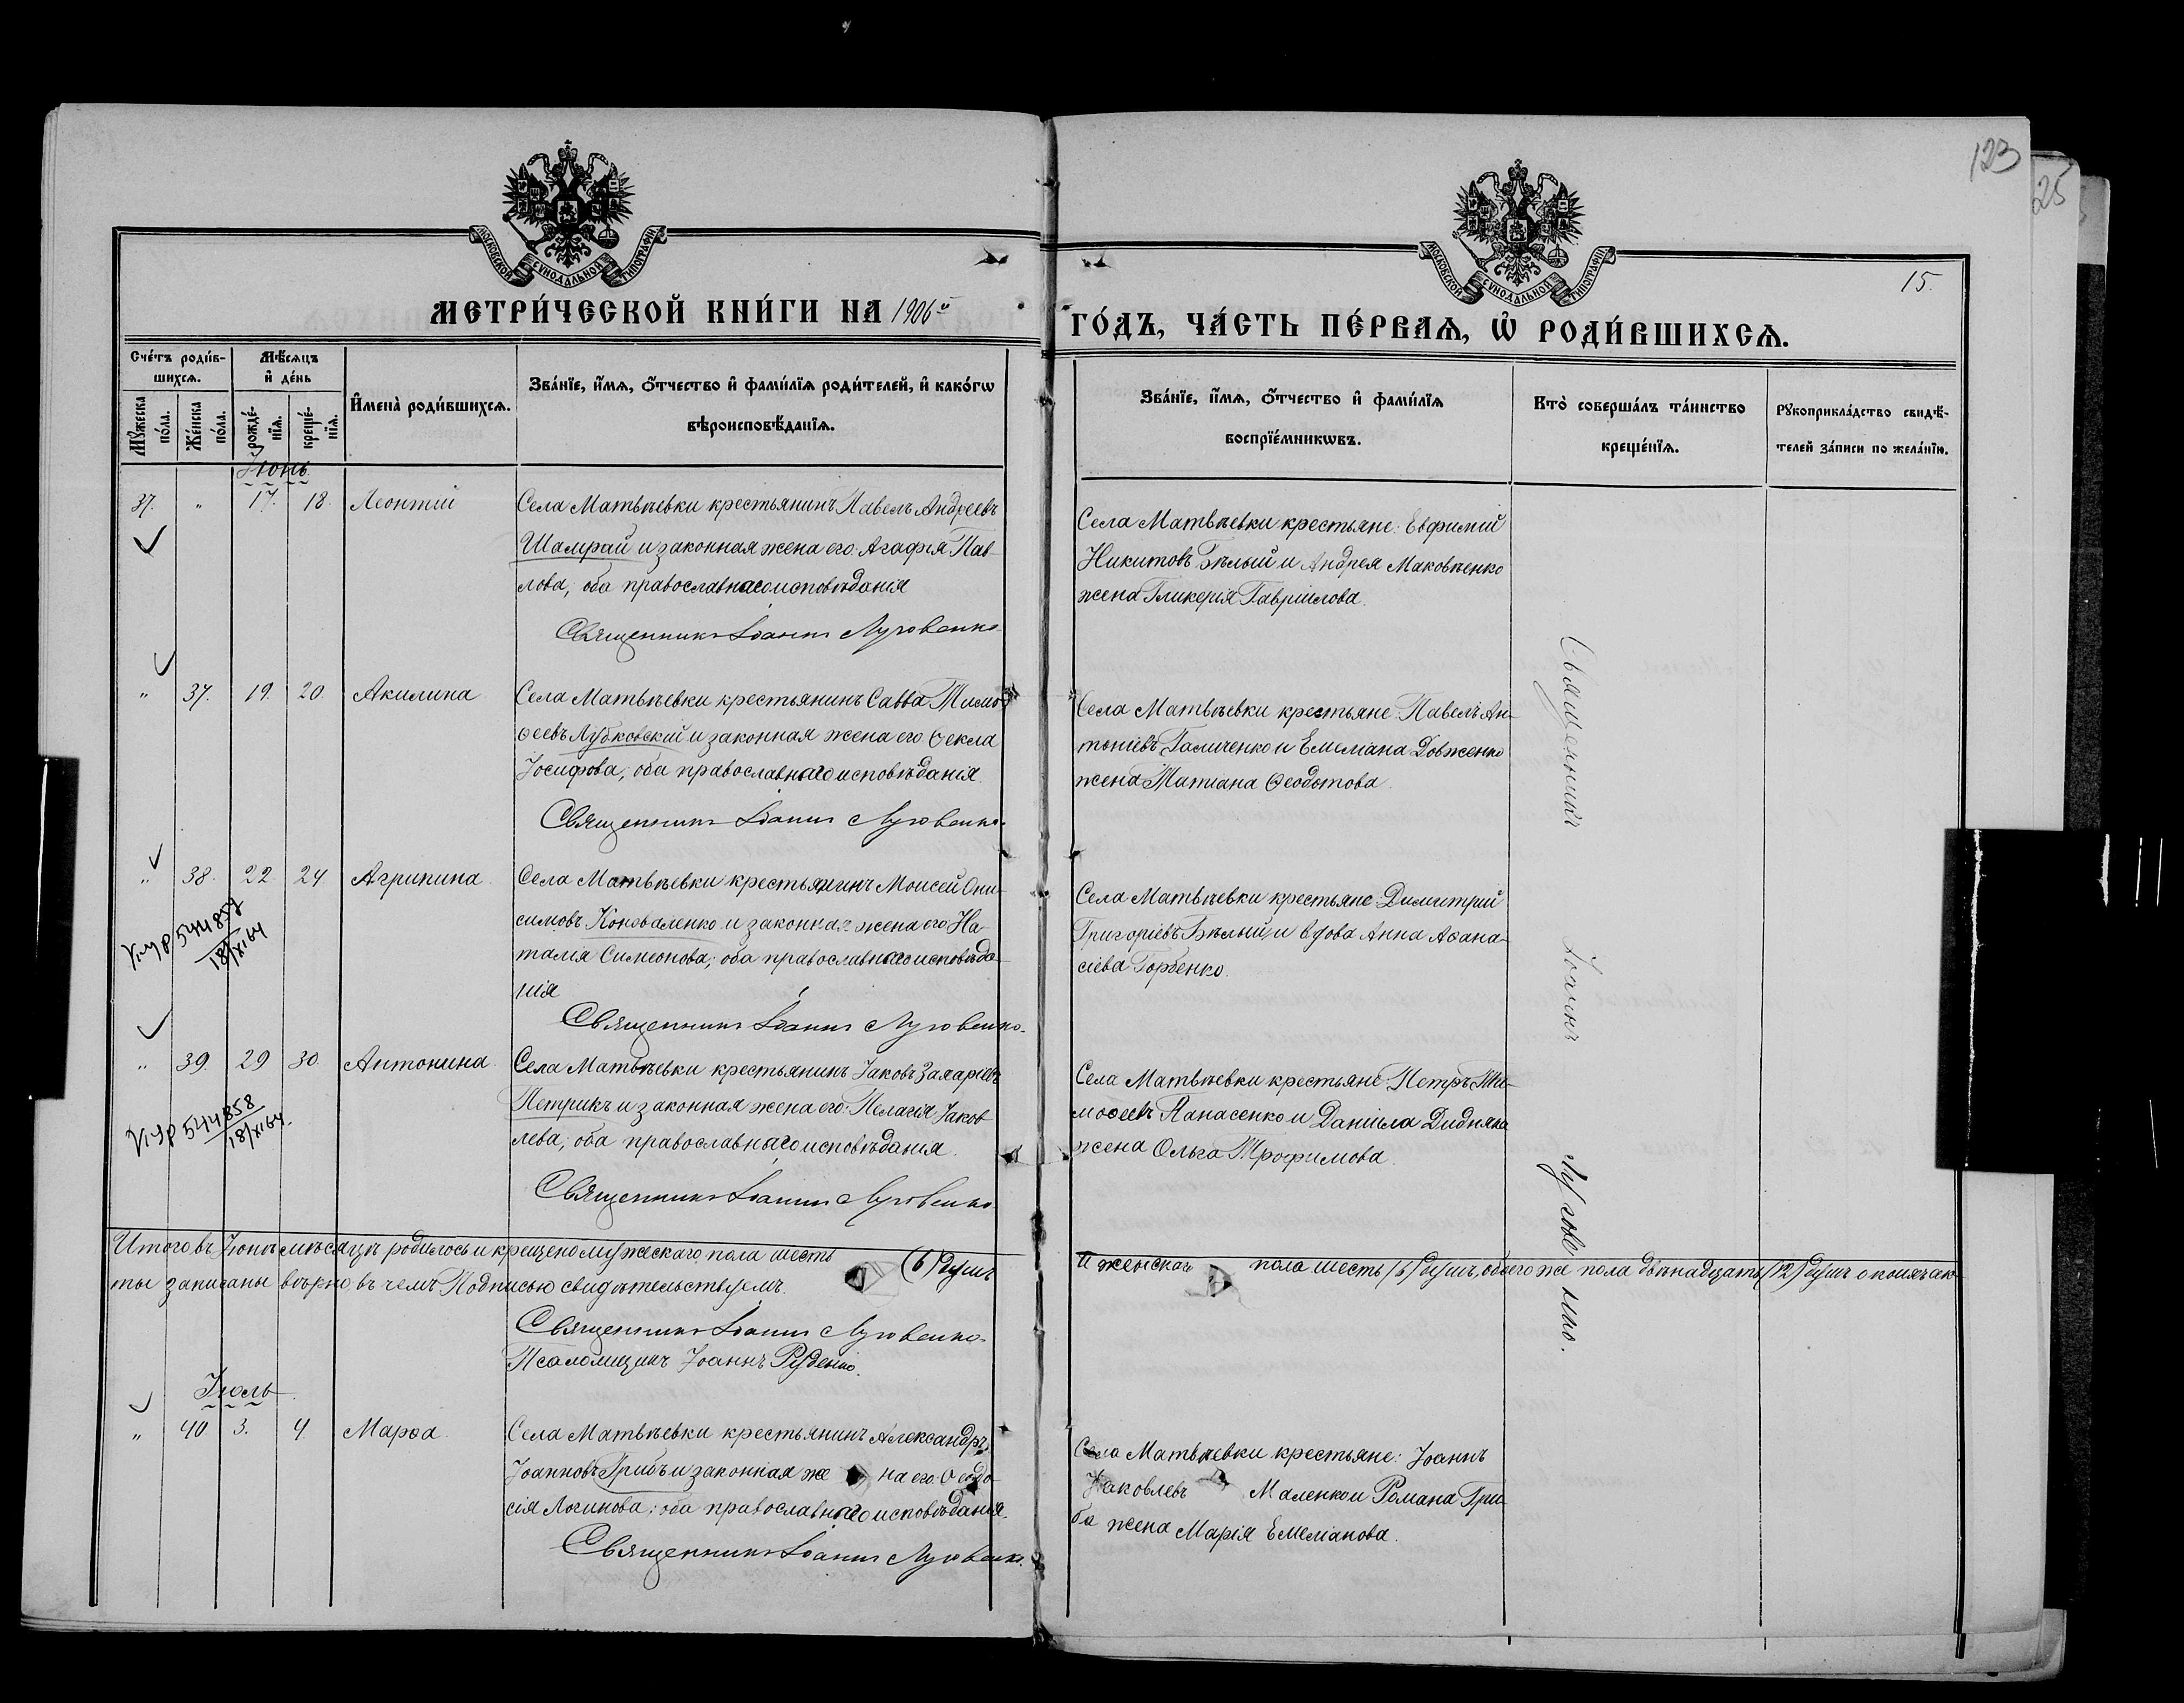 123
25
15.
МОСКОВСКОЙ СѴНОДАЛЬНОЙ ТИПОГРАФІИ
МОСКОВСКОЙ СѴНОДАЛЬНОЙ ТИПОГРАФІИ
МЕТРИ́ЧЕСКОЙ КНИ́ГИ НА 1906й
ГО́ДЪ, ЧА́СТЬ ПЕ́РВАѦ, Ѽ РОДИ́ВШИХСѦ.
Сче́тъ роди́в-
шихсѧ.
Мѣ́сѧцъ
и҆ де́нь
Мꙋ́жеска по́ла.
Же́нска по́ла.
рожде́-нїѧ.
креще́-нїѧ.
И҆мена̀ роди́вшихсѧ.
Зва́нїе, и҆́мѧ, ѻ҆́тчество и҆ фами́лїѧ роди́телей, и҆ како́гѡ
вѣроисповѣ́данїѧ.
Зва́нїе, и҆́мѧ, ѻ҆́тчество и҆ фами́лїѧ
воспрїе́мникѡвъ.
Кто̀ соверша́лъ та́инство
креще́нїѧ.
Рꙋкоприкла́дство свидѣ́-
телей за́писи по жела́нїю.
Іюнь
37. " 17. 18. Леонтій
Села Матвѣевки крестьянинъ Павелъ Андреевъ
Шамрай и законная жена его Агафія Пав-
лова, оба православнаго исповѣданія
Священникъ Іоаннъ Луговенко
Села Матвѣевки крестьяне: Евфимій
Никитовъ Бѣлый и Андрея Маковѣенко
жена Гликерія Гавріилова.
" 37. 19. 20. Акилина
Села Матвѣевки крестьянинъ Савва Тимо-
ѳеевъ Лубковскій и законная жена его Ѳекла
Іосифова, оба православнаго исповѣданія.
Священникъ Іоаннъ Луговенко.
Села Матвѣевки крестьяне: Павелъ Ан-
тоніевъ Галиченко и Емиліана Довженко
жена Татіана Ѳеодотова.
" 38. 22. 24 Агрипина.
Села Матвѣевки крестьянинъ Моисей Они-
симовъ Коноваленко и законная жена его На-
талія Симеонова; оба православнаго исповѣда-
нія
Священникъ Іоаннъ Луговенко.
544857
18/XI 64
Села Матвѣевки крестьяне: Димитрій
Григоріевъ Бѣлый, и вдова Анна Аѳана-
сіева Горбенко.
" 39. 29 30. Антонина.
Села Матвѣевки крестьянинъ Іаковъ Захаріевъ
Петрикъ и законная жена его: Пелагія Іаков-
лева, оба православнаго исповѣданія.
Священникъ Іоаннъ Луговенко
544858
18/XI 64.
Села Матвѣевки крестьяне: Петръ Ти-
моѳеевъ Панасенко и Даніила Дидняка
жена Ольга Трофимова.
Священникъ Іоаннъ Луговенко.
Итого въ Іюнѣ мѣсяцѣ родилось и крещено мужескаго пола шесть (6) душъ
и женскаго пола шесть (6) душъ, обоего же пола двѣнадцать (12) душъ о коихъ ак-
ты записаны вѣрно въ чемъ Подписью свидѣтельствуемъ.
Священникъ Іоаннъ Луговенко.
Псаломщикъ Іоаннъ Руденко.
Іюль
" 40 3. 4. Марѳа
Села Матвѣевки крестьянинъ Александръ
Іоанновъ Грибъ и законная жена его: Ѳеодо-
сія Логинова; оба православнаго исповѣданія.
Священникъ Іоаннъ Луговенко.
Села Матвѣевки крестьяне: Іоаннъ
Іаковлевъ Маленко и Романа Гри-
ба жена Марія Емеліанова.